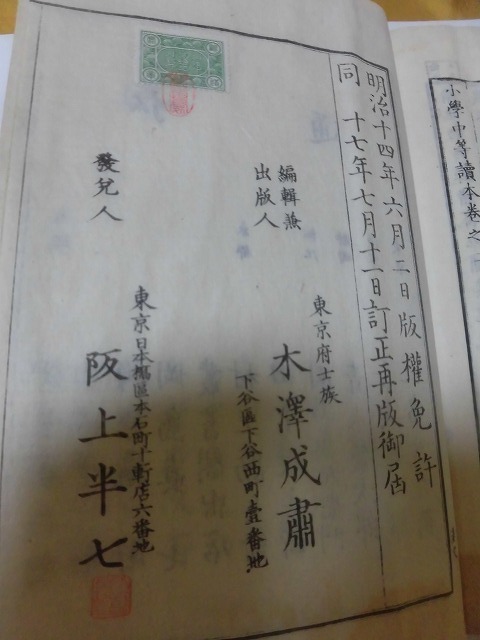 明治十四年六月二日版權免許
同 十七年七月十一日訂正再版御届
編輯兼
出版人
東京府士族
木澤成肅
下谷區下谷西町壹番地
發兌人
東京日本橋區本石町十軒店六番地
阪上半七
小學中等讀本卷之